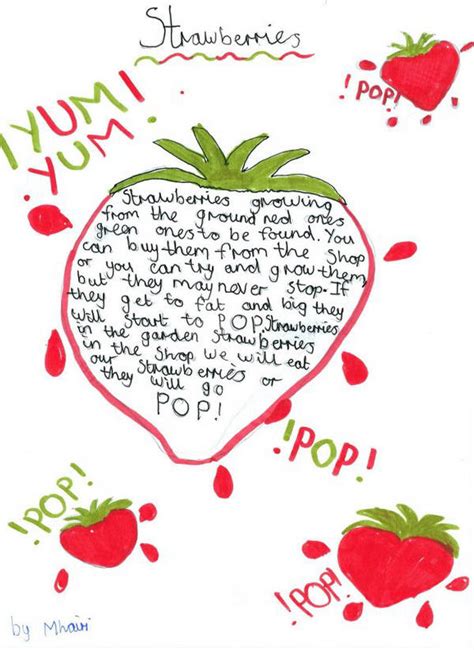 Strawberries
!YUM!
YUM
!POP!
Strawberries growing
from the ground red ones
green ones to be found. You
can buy them from the shop
or you can try and grow them
but they may never stop. If
they get to fat and big they
will start to POP. Strawberries
in the garden strawberries
in the shop we will eat
our strawberries or
they will go
POP!
!POP!
!POP!
!POP!
by Mhairi